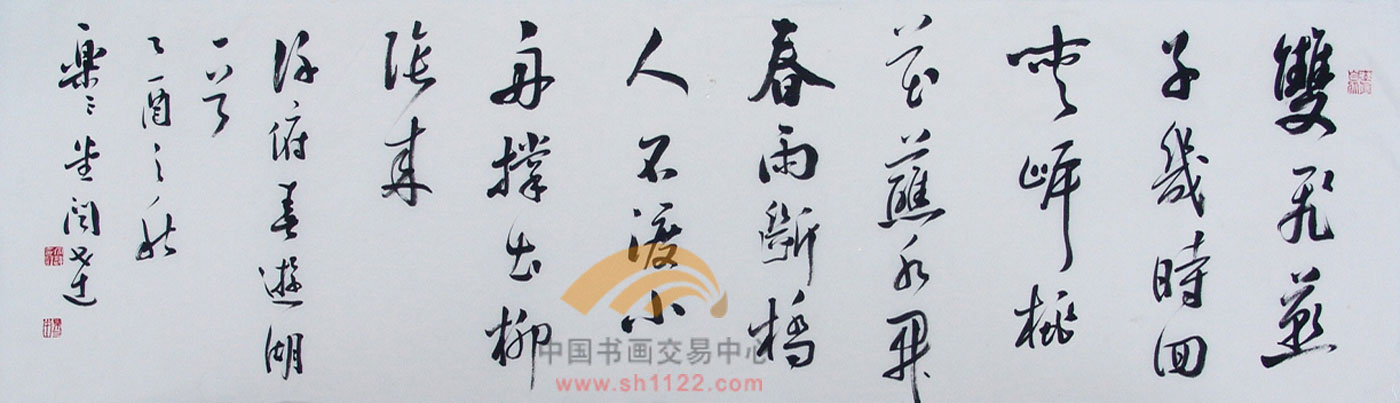 雙飛燕
子幾時回
夾岸桃
花蘸水開
春雨斷橋
人不渡小
舟撐出柳
陰來
徐俯春遊湖
一首
乙酉之秋
樂堂
中国书画交易中心
www.sh1122.com